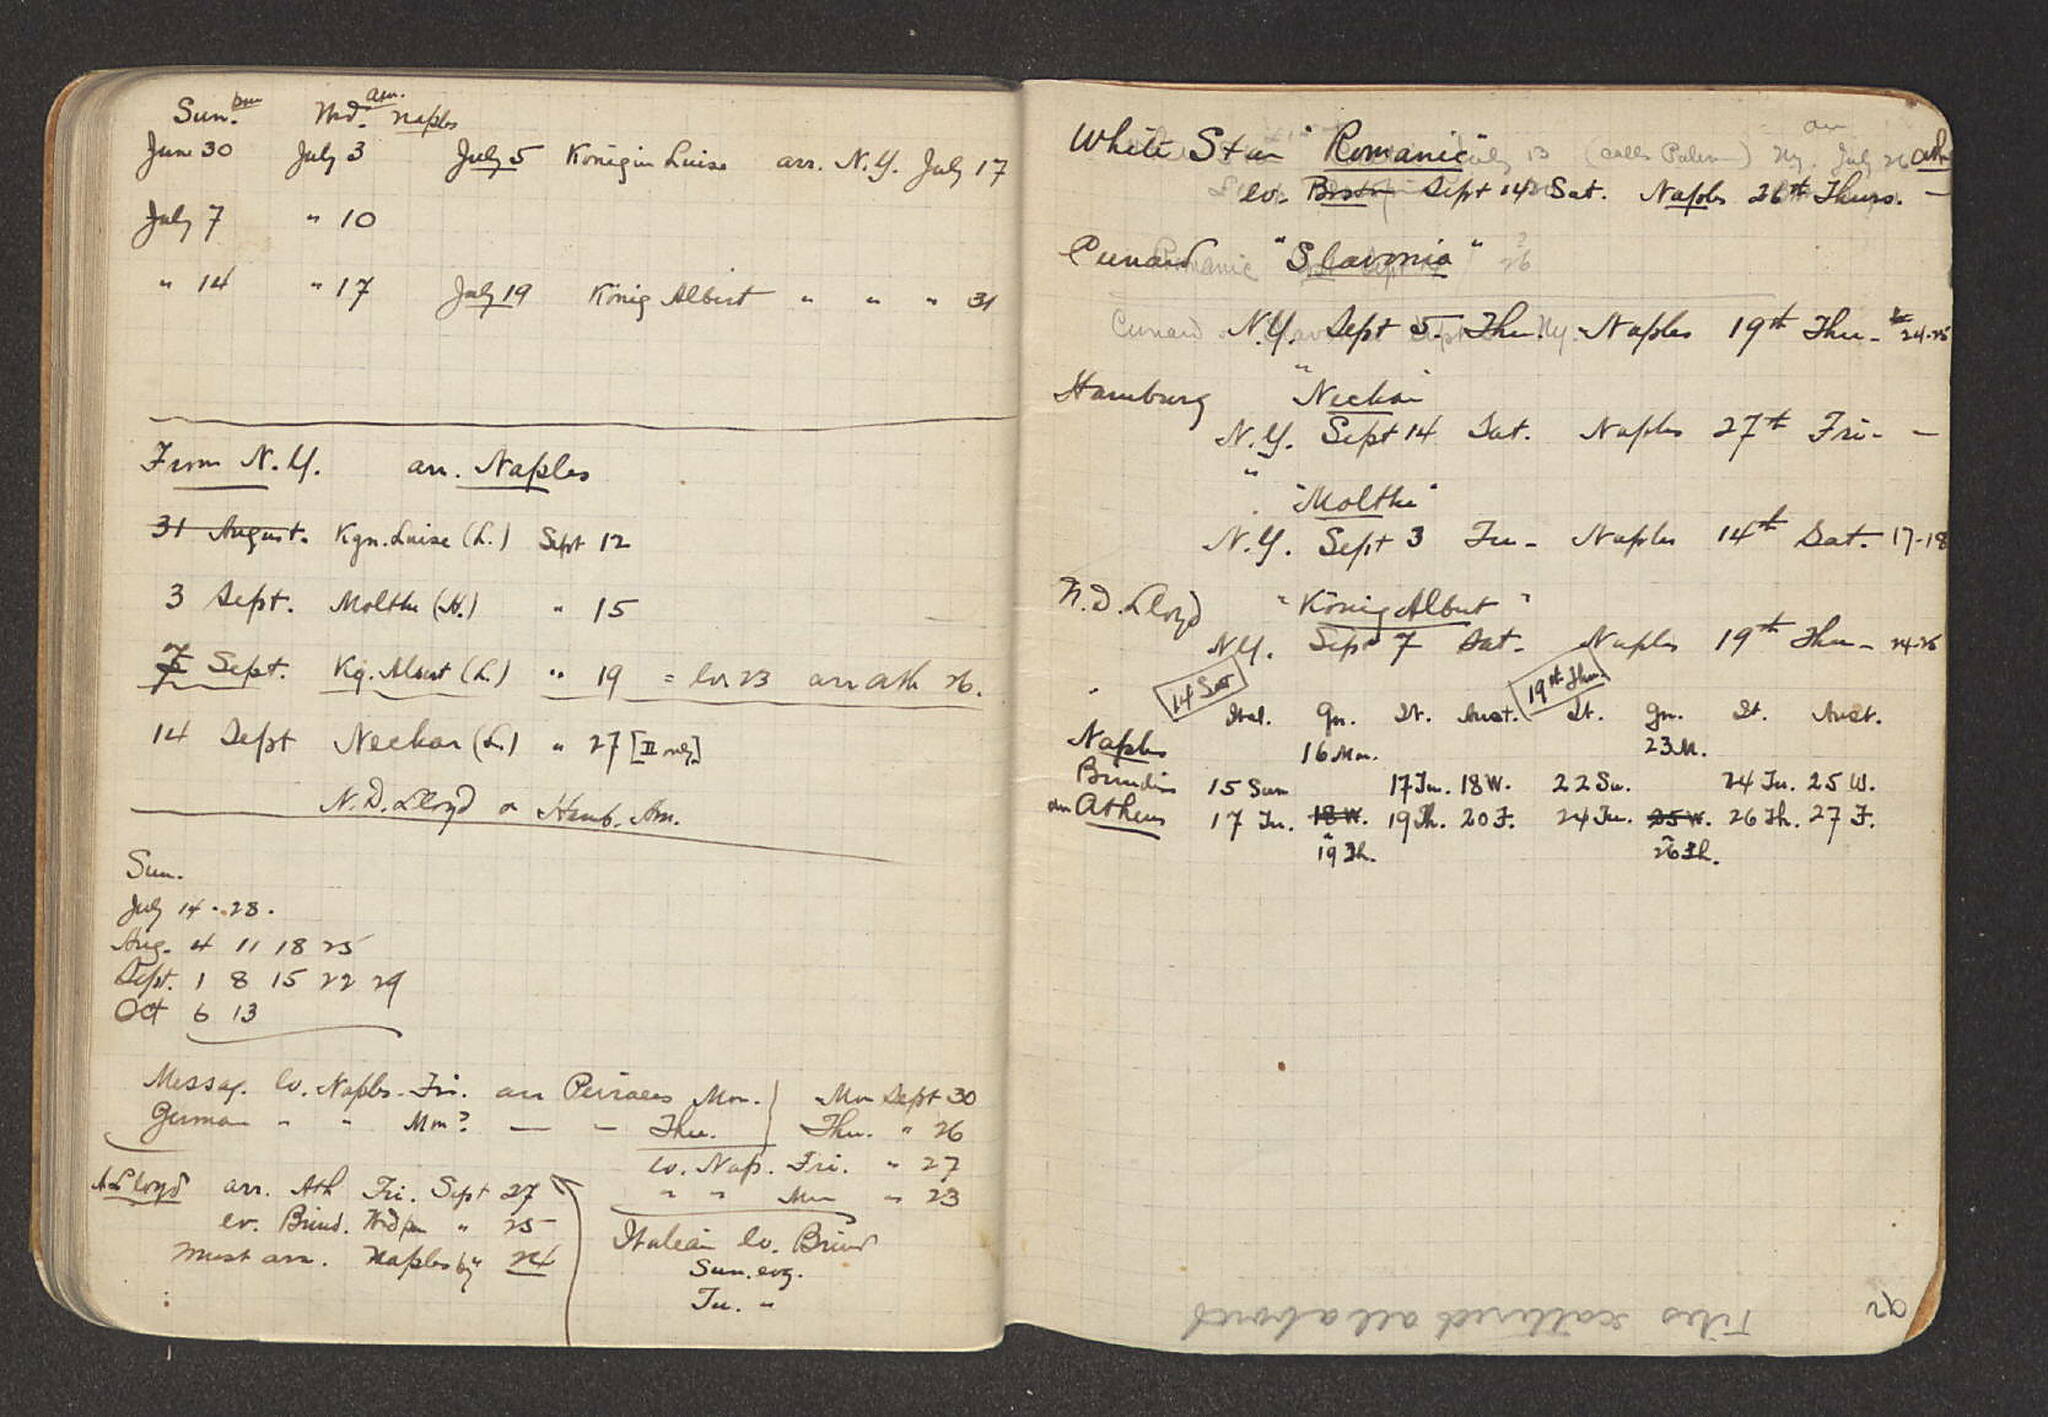 Sun. pm Wed. am. Naples
June 30 July 3 July 5 Königin Luise arr. N.Y. July 17
July 7 " 10
" 14 " 17 July 19 König Albert " " " 31
From N.Y. arr. Naples
31 August. Kgn. Luise (L.) Sept 12
3 Sept. Moltke (H.) " 15
7 Sept. Kg. Albert (L.) " 19 = lv. 23 arr Ath 26.
14 Sept Neckar (L.) " 27 [II only]
N.D. Lloyd or Hamb. Am.
Sun.
July 14 - 28.
Aug. 4 11 18 25
Sept. 1 8 15 22 29
Oct 6 13
Messag. lv. Naples - Fri. arr Peiraeus Mon. } Mon Sept 30
German " " Mon? — — Thu. } Thu. " 26
lv. Nap. Fri. " 27
" " Mon " 23
A Lloyd arr. Ath Fri. Sept 27
lv. Brind. Wed pm " 25
must arr. Naples by 24
Italian lv. Brind
Sun. evg.
Tu. "
White Star "Romanic" Ath
lv. Bost Sept 14 Sat. Naples 26th Thurs. —
13 (calls Palermo) N.Y. July 26
Cunard "Slavonia"
Romanic 26
N.Y. Sept 5 Thu. Naples 19th Thu - 24-26
Cunard
Hamburg "Neckar"
N.Y. Sept 14 Sat. Naples 27th Fri - —
" "Moltke"
N.Y. Sept 3 Tu - Naples 14th Sat. 17-18
N.D. Lloyd "König Albert"
N.Y. Sept 7 Sat - Naples 19th Thu - 24-26
14 Sat 19th Thu.
Ital. Gr. It. Aust. It. Gr. It. Aust.
Naples 16 Mon. 23 M.
Brindisi 15 Sun 17 Tu. 18 W. 22 Su. 24 Tu. 25 W.
arr Athens 17 Tu. 18 W. 19 Th. 20 F. 24 Tu. 25 W. 26 Th. 27 F.
19 Th. 26 Th.
Tiles scattered all about
92